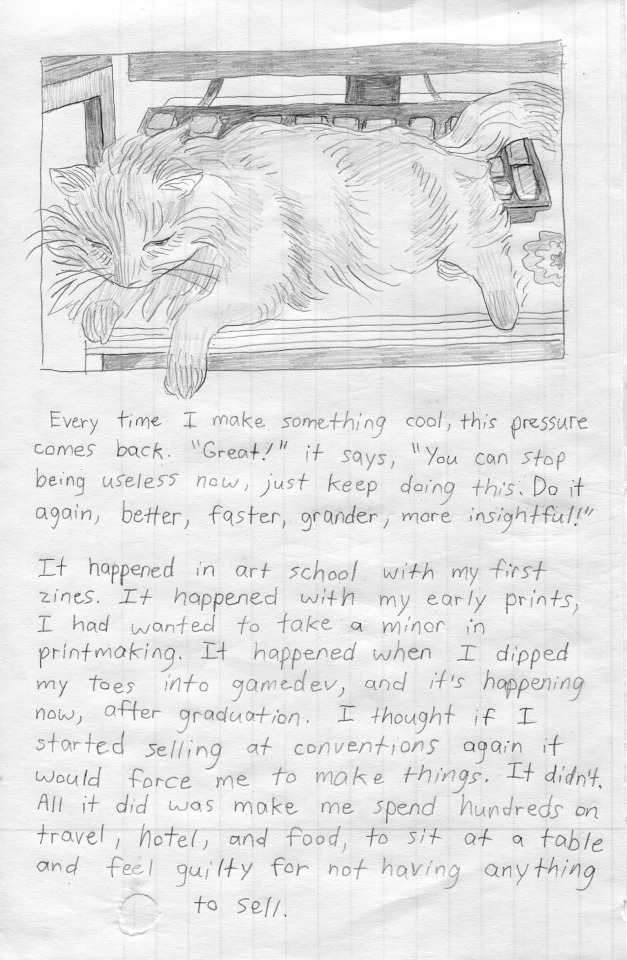 Every time I make something cool, this pressure
comes back. "Great!" it says, "You can stop
being useless now, just keep doing this. Do it
again, better, faster, grander, more insightful!"
It happened in art school with my first
zines. It happened with my early prints,
I had wanted to take a minor in
printmaking. It happened when I dipped
my toes into gamedev, and it's happening
now, after graduation. I thought if I
started selling at conventions again it
would force me to make things. It didn't.
All it did was make me spend hundreds on
travel, hotel, and food, to sit at a table
and feel guilty for not having anything
to sell.